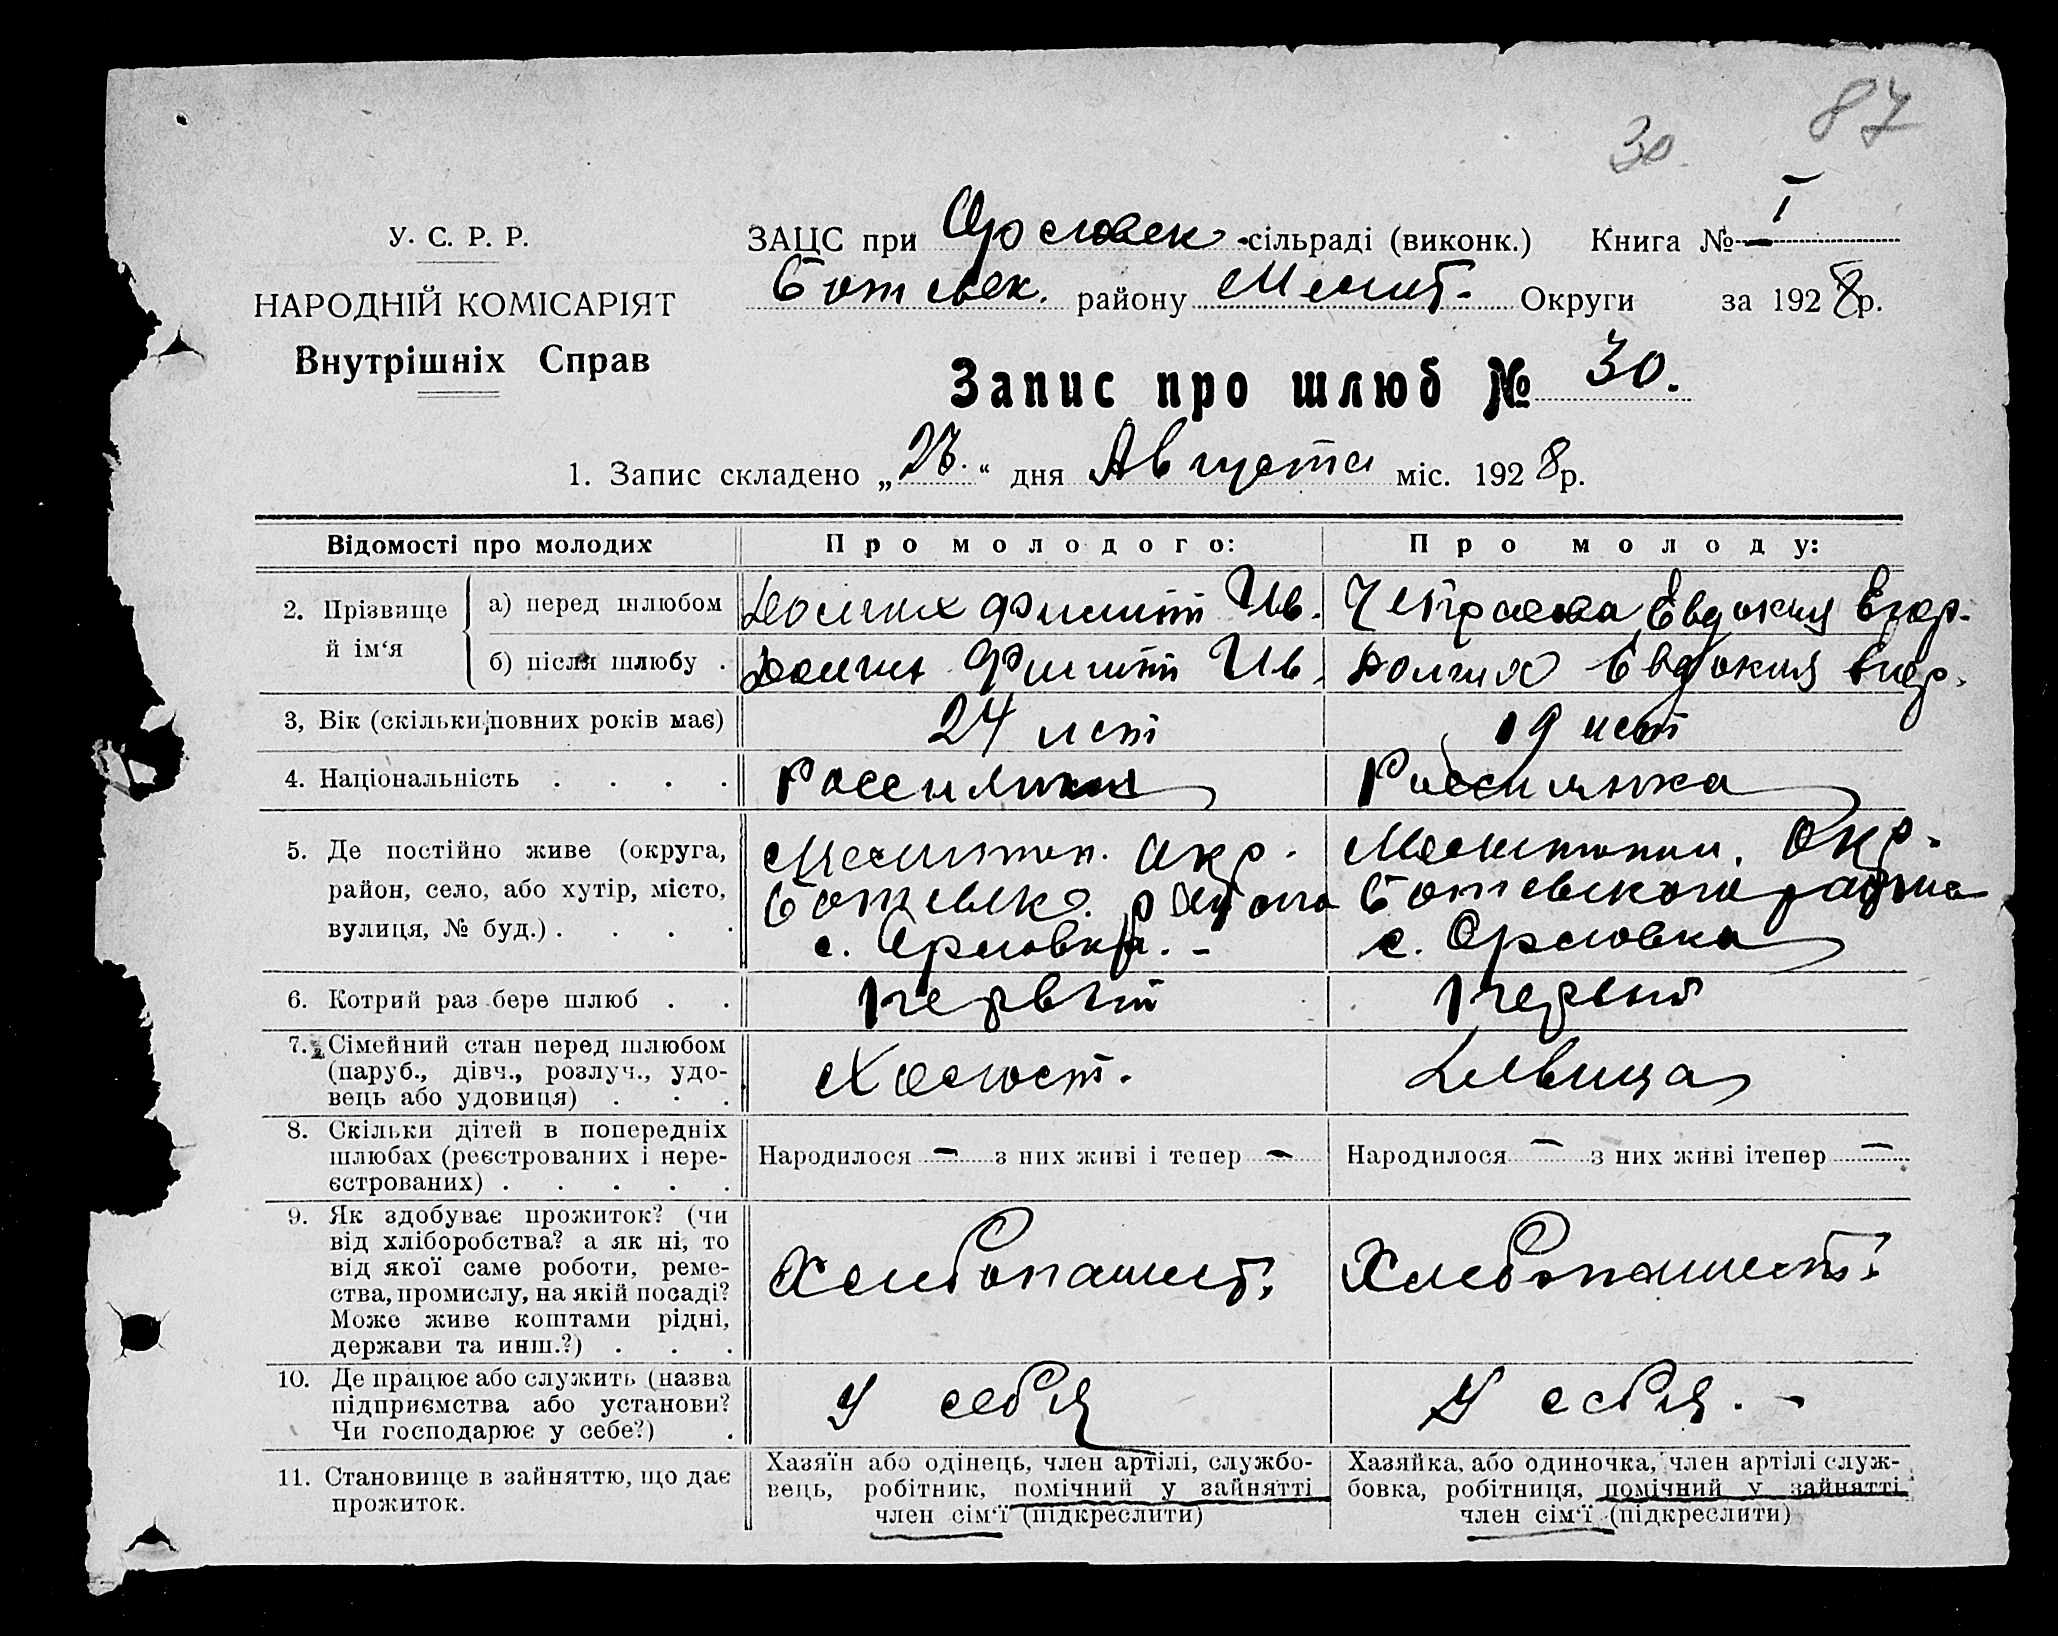 87
30.
У. С. Р. Р.
НАРОДНІЙ КОМІСАРІЯТ
Внутрішніх Справ
ЗАЦС при Орловск. сільраді (виконк.) Книга № I
Ботievск. району Мелит. Округи за 1928 р.
Запис про шлюб № 30.
1. Запис складено „ “ дня Августа міс. 1928 р.
Відомості про молодих
Про молодого:
Про молоду:
2. Прізвище й ім‘я
а) перед шлюбом
Долгих Филипп Ив.
Евдокия Егор.
б) після шлюбу .
Долгих Филипп Ив.
Долгих Евдокия Егор.
3, Вік (скільки повних років має)
24 лет
19 лет
4. Національність . . . .
Россиянка
5. Де постійно живе (округа,
район, село, або хутір, місто,
вулиця, № буд.) . . . .
Мелитоп. окр.
Ботievско. района
с. Орловка. -
Мелитопол. Окр.
Ботievского района
с. Орловка
6. Котрий раз бере шлюб . .
первый
первый
7. Сімейний стан перед шлюбом
(паруб., дівч., розлуч., удо-
вець або удовиця) . . .
Холост.
Девица
8. Скільки дітей в попередніх
шлюбах (реєстрованих і нере-
єстрованих) . . . . .
Народилося - з них живі і тепер -
Народилося - з них живі ітепер -
9. Як здобуває прожиток? (чи
від хліборобства? а як ні, то
від якої саме роботи, реме-
ства, промислу, на якій посаді?
Може живе коштами рідні,
держави та инш.?) . . .
Хлебопашест.
Хлебопашест.
10. Де працює або служить (назва
підприємства або установи?
Чи господарює у себе?) .
У себя
У себя. -
11. Становище в зайняттю, що дає
прожиток.
Хазяїн або одінець, член артілі, службо-
вець, робітник, помічний у зайнятті
член сім‘ї (підкреслити)
Хазяйка, або одиночка, член артілі служ-
бовка, робітниця, помічний у зайнятті
член сім‘ї (підкреслити)